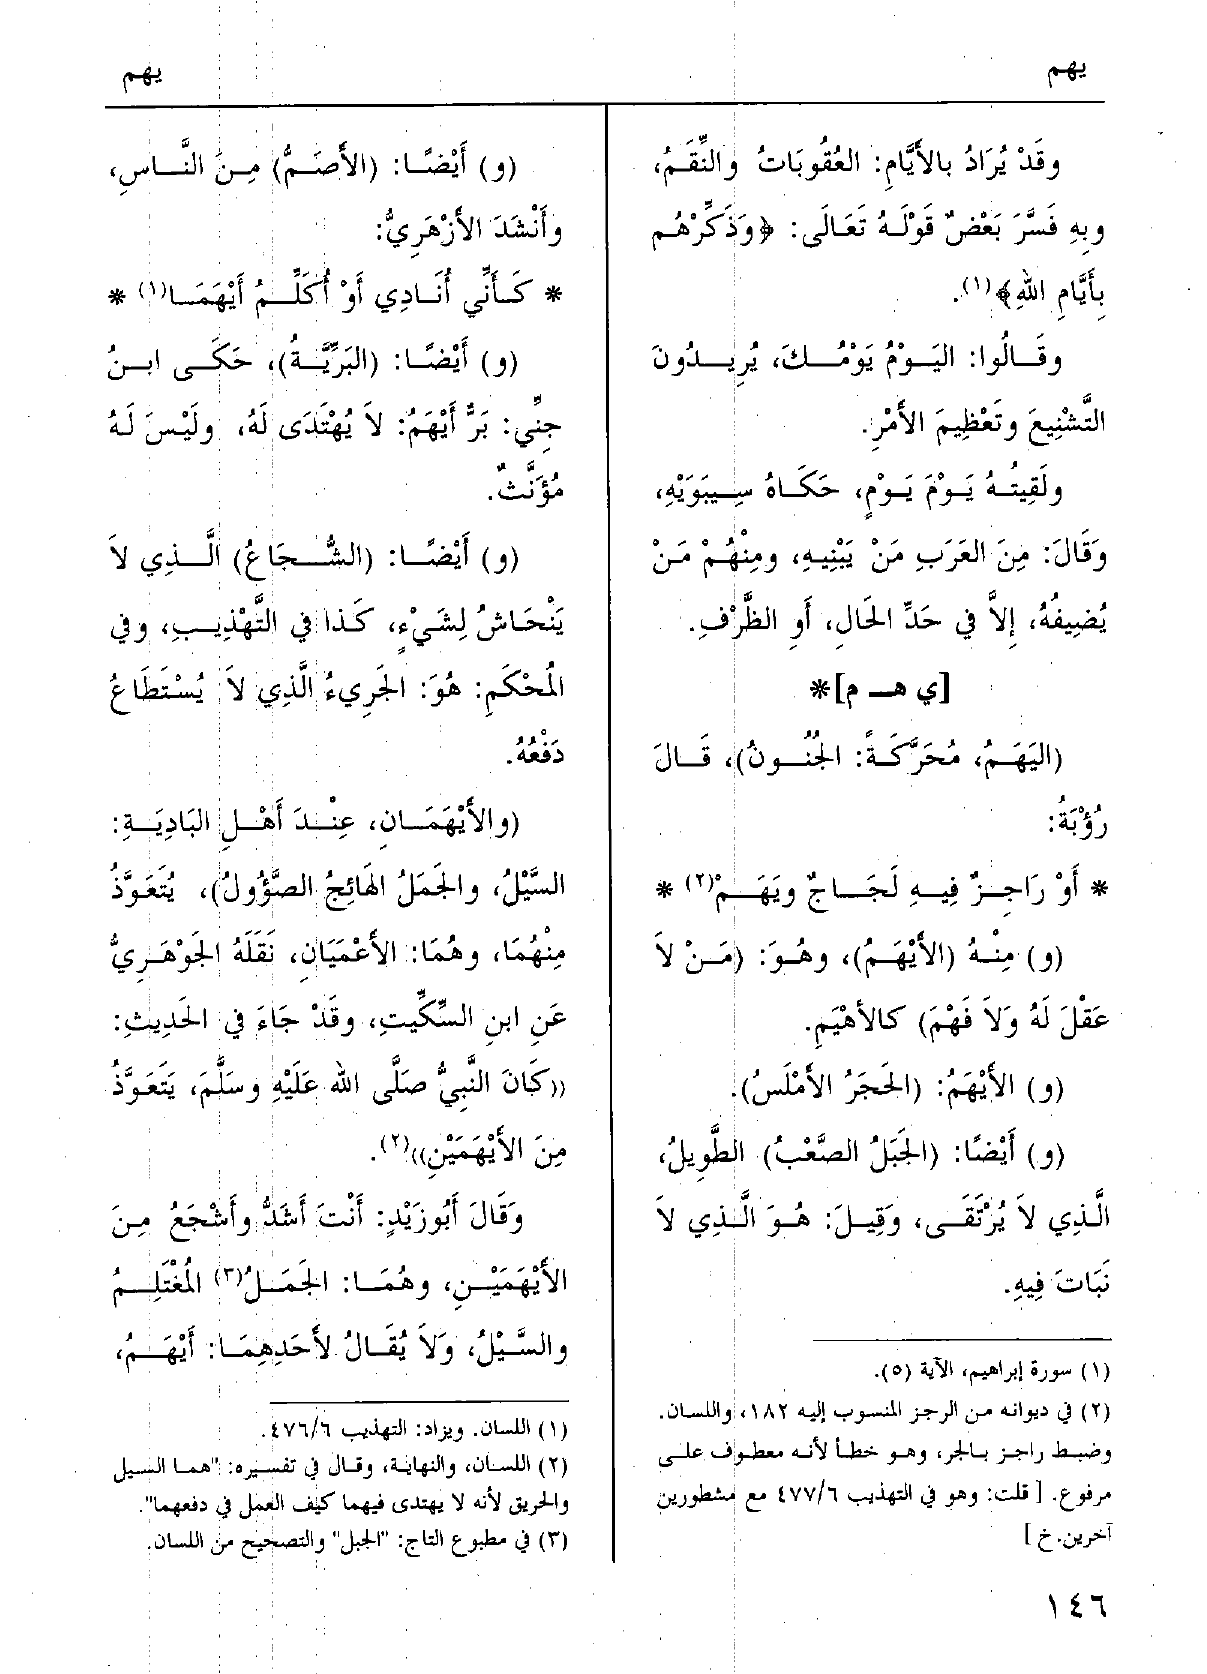 يهم
يهم
وقَدْ يُرَادُ بالأَيَّامِ: العُقُوبَاتُ والنِّقَمُ،
وبِهِ فَسَّرَ بَعْضٌ قَوْلَهُ تَعَالَى: ﴿وَذَكِّرْهُم
بِأَيَّامِ اللهِ﴾(١).
وقَالُوا: اليَوْمُ يَوْمُكَ، يُرِيدُونَ
التَّشْنِيعَ وتَعْظِيمَ الأَمْرِ.
ولَقِيتُهُ يَوْمَ يَوْمٍ، حَكَاهُ سِيبَوَيْهِ،
وَقَالَ: مِنَ العَرَبِ مَنْ يَبْنِيهِ، ومِنْهُمْ مَنْ
يُضِيفُهُ، إلاَّ في حَدِّ الحَالِ، أَوِ الظَّرْفِ.
[ي هـ م]*
(اليَهَمُ، مُحَرَّكَةً: الجُنُونُ)، قَالَ
رُؤْبَةُ:
* أَوْ رَاجِزٌ فِيهِ لَجَاجٌ ويَهَمْ(٢) *
(و) مِنْهُ (الأَيْهَمُ)، وهُوَ: (مَنْ لاَ
عَقْلَ لَهُ وَلاَ فَهْمَ) كالأَهْيَمِ.
(و) الأَيْهَمُ: (الحَجَرُ الأَمْلَسُ).
(و) أَيْضًا: (الجَبَلُ الصَّعْبُ) الطَّوِيلُ،
الَّذِي لاَ يُرْتَقَى، وَقِيلَ: هُوَ الَّذِي لاَ
نَبَاتَ فِيهِ.
(١) سورة إبراهيم، الآية (٥).
(٢) في ديوانه من الرجز المنسوب إليه ١٨٢، واللسان.
وضبط راجز بالجر، وهو خطأ لأنه معطوف على
مرفوع. [ قلت: وهو في التهذيب ٤٧٧/٦ مع مشطورين
آخرين.خ ]
(و) أَيْضًا: (الأَصَمُّ) مِنَ النَّاسِ،
وأَنْشَدَ الأَزْهَرِيُّ:
* كَأَنِّي أُنَادِي أَوْ أُكَلِّمُ أَيْهَمَا(١) *
(و) أَيْضًا: (البَرِّيَّةُ)، حَكَى ابنُ
جِنِّي: بَرٌّ أَيْهَمُ: لاَ يُهْتَدَى لَهُ، ولَيْسَ لَهُ
مُؤَنَّثٌ.
(و) أَيْضًا: (الشُّجَاعُ) الَّذِي لاَ
يَنْحَاشُ لِشَيْءٍ، كَذا في التَّهْذِيبِ، وفي
المُحْكَمِ: هُوَ: الجَرِيءُ الَّذِي لاَ يُسْتَطَاعُ
دَفْعُهُ.
(والأَيْهَمَانِ، عِنْدَ أَهْلِ البَادِيَةِ:
السَّيْلُ، والجَمَلُ الهَائِجُ الصَّؤُولُ)، يُتَعَوَّذُ
مِنْهُمَا، وهُمَا: الأَعْمَيَانِ، نَقَلَهُ الجَوْهَرِيُّ
عَنِ ابنِ السِّكِّيتِ، وقَدْ جَاءَ في الحَدِيثِ:
((كَانَ النَّبِيُّ صَلَّى الله عَلَيْهِ وسَلَّمَ، يَتَعَوَّذُ
مِنَ الأَيْهَمَيْنِ))(٢).
وَقَالَ أَبُوزَيْدٍ: أَنْتَ أَشَدُّ وأَشْجَعُ مِنَ
الأَيْهَمَيْنِ، وهُمَا: الجَمَلُ(٣) المُغْتَلِمُ
والسَّيْلُ، وَلاَ يُقَالُ لأَحَدِهِمَا: أَيْهَمُ،
(١) اللسان. ويزاد: التهذيب ٤٧٦/٦.
(٢) اللسان، والنهاية، وقال في تفسيره: "هما السيل
والحريق لأنه لا يهتدى فيهما كيف العمل في دفعهما".
(٣) في مطبوع التاج: "الجبل" والتصحيح من اللسان.
١٤٦